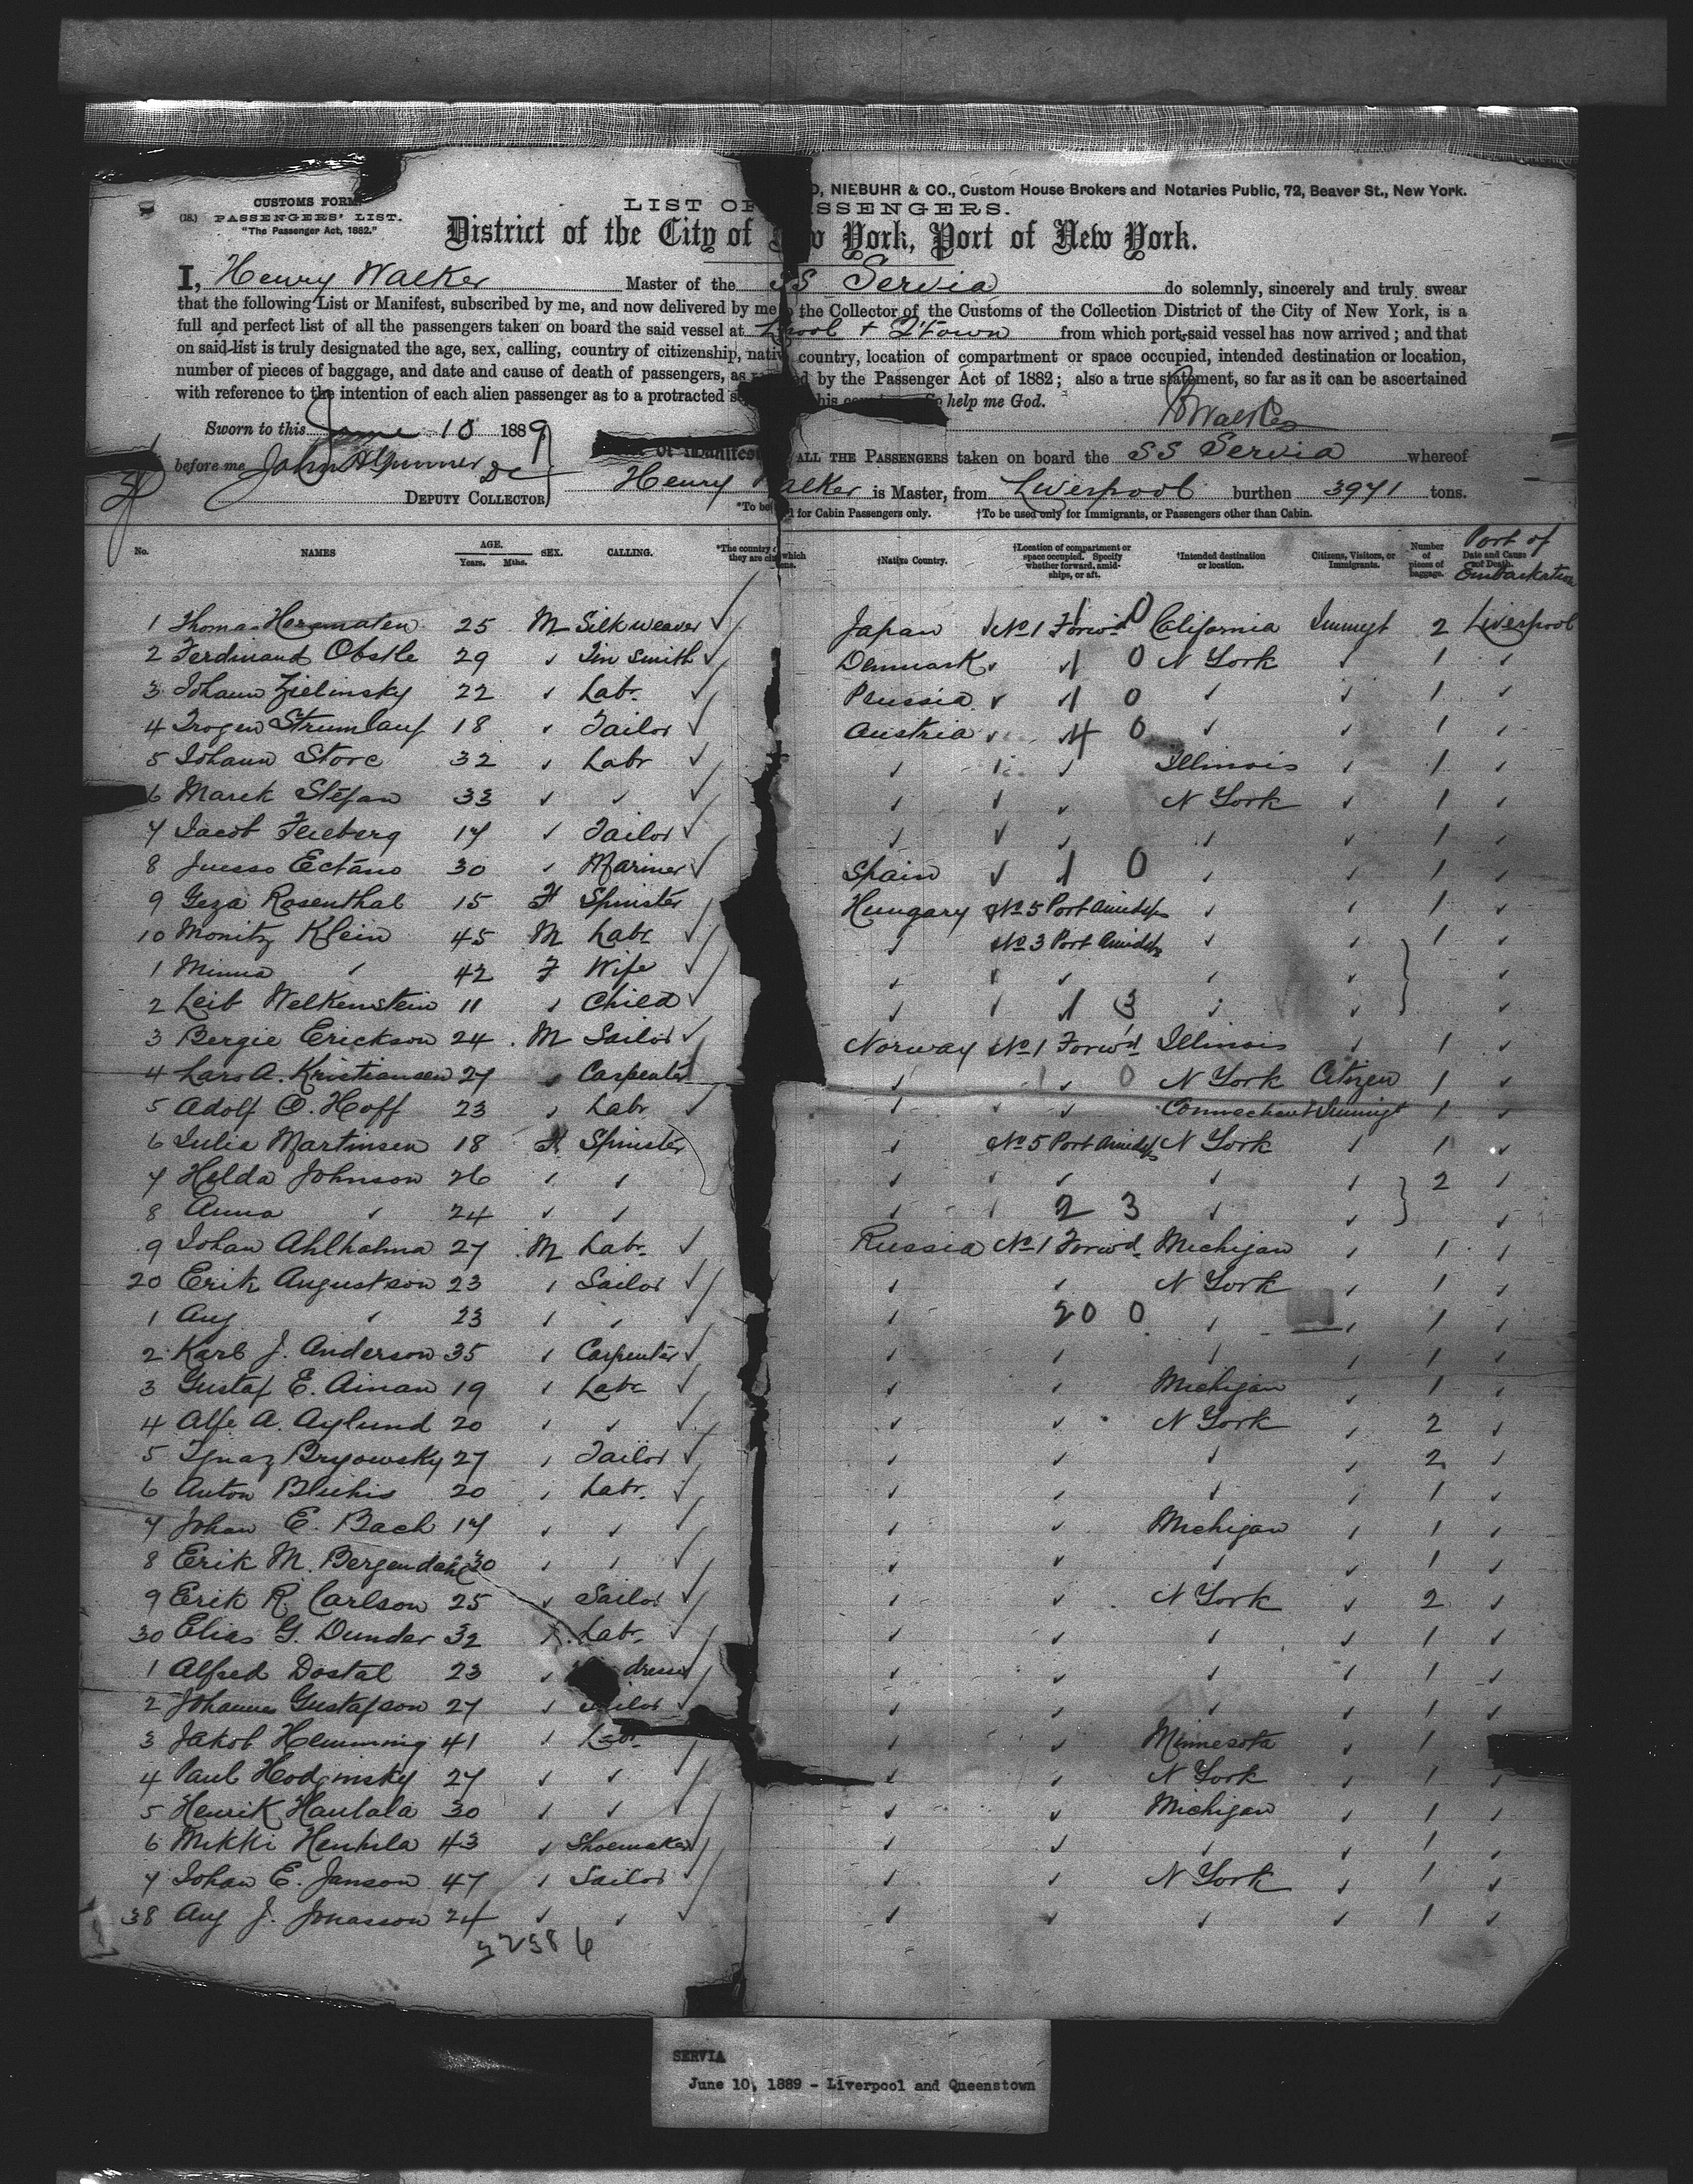 CUSTOMS FORM.
(18.) PASSENGERS' LIST.
"The Passenger Act, 1882."
NIEBUHR & CO., Custom House Brokers and Notaries Public, 72, Beaver St., New York.
LIST OF PASSENGERS.
District of the City of New York, Port of New York.
I, Henry Walker Master of the SS Servia do solemnly, sincerely and truly swear
that the following List or Manifest, subscribed by me, and now delivered by me to the Collector of the Customs of the Collection District of the City of New York, is a
full and perfect list of all the passengers taken on board the said vessel at L'pool + Q'town from which port said vessel has now arrived; and that
on said list is truly designated the age, sex, calling, country of citizenship, native country, location of compartment or space occupied, intended destination or location,
number of pieces of baggage, and date and cause of death of passengers, as required by the Passenger Act of 1882; also a true statement, so far as it can be ascertained
with reference to the intention of each alien passenger as to a protracted his So help me God.
HWalker
Sworn to this June 10 1889
before me John
DEPUTY COLLECTOR
or Manifest ALL THE PASSENGERS taken on board the SS Servia whereof
Henry Walker is Master, from Liverpool burthen 3971 tons.
*To be for Cabin Passengers only. †To be used only for Immigrants, or Passengers other than Cabin.
No. NAMES AGE. Years. Mths. SEX. CALLING. *The country of which they are †Native Country. †Location of compartment or space occupied. Specify whether forward, amidships, or aft. †Intended destination or location. Citizens, Visitors, or Immigrants. Number of pieces of baggage. Date and Cause of Death. Port of Embarkation
1 Thomas 25 M Silk weaver ✓ Japan ✓ No 1 Forwd 1 0 California Immigt 2 Liverpool
2 Ferdinand Obstle 29 ✓ Tin smith ✓ Denmark ✓ 1 0 N York ✓ 1 ✓
3 Johann Zielinsky 22 ✓ Labr ✓ Prussia ✓ 1 0 ✓ ✓ 1 ✓
4 Strumlauf 18 ✓ Tailor ✓ Austria ✓ 4 0 ✓ ✓ 1 ✓
5 Johann Store 32 ✓ Labr ✓ ✓ ✓ Illinois ✓ 1 ✓
6 Marek Stefan 33 ✓ ✓ ✓ ✓ ✓ ✓ N York ✓ 1 ✓
7 Jacob Fleeberg 17 ✓ Tailor ✓ ✓ ✓ ✓ ✓ ✓ 1 ✓
8 Juesso Ectano 30 ✓ Mariner ✓ Spain ✓ 1 0 ✓ ✓ 1 ✓
9 Geza Rosenthal 15 F Spinster Hungary No 5 Port Amidsps ✓ ✓ 1 ✓
10 Monitz Klein 45 M Labr ✓ ✓ No 3 Port Amidsps ✓ ✓ 1
1 Minna ✓ 42 F Wife ✓ ✓ ✓ ✓ ✓ ✓ ✓
2 Leib Welkenstein 11 ✓ Child ✓ ✓ ✓ 1 3 ✓ ✓ ✓
3 Bergie Erickson 24 M Sailor ✓ Norway No 1 Forwd Illinois ✓ 1 ✓
4 Lars A. Kristiansen 27 ✓ Carpenter ✓ ✓ 0 N York Citizen 1 ✓
5 Adolf O. Hoff 23 ✓ Labr ✓ ✓ ✓ ✓ Connecticut Immigt 1 ✓
6 Julia Martinsen 18 F Spinster ✓ No 5 Port Amidsps N York ✓ 1 ✓
7 Helda Johnson 26 ✓ ✓ ✓ ✓ ✓ ✓ ✓ 2 ✓
8 Anna ✓ 24 ✓ ✓ ✓ ✓ 2 3 ✓ ✓ ✓
9 Johan Ahlholma 27 M Labr ✓ Russia No 1 Forwd Michigan ✓ 1 ✓
20 Erik Augustson 23 ✓ Sailor ✓ ✓ ✓ N York ✓ 1 ✓
1 Aug ✓ 23 ✓ ✓ ✓ ✓ 20 0 ✓ ✓ 1 ✓
2 Karl J. Anderson 35 ✓ Carpenter ✓ ✓ ✓ ✓ ✓ 1 ✓
3 Gustaf E. Ainan 19 ✓ Labr ✓ ✓ ✓ Michigan ✓ 1 ✓
4 Alfe A. Aylund 20 ✓ ✓ ✓ ✓ ✓ N York ✓ 2 ✓
5 Ignaz Bryowsky 27 ✓ Tailor ✓ ✓ ✓ ✓ ✓ 2 ✓
6 Anton Bluhis 20 ✓ Labr. ✓ ✓ ✓ ✓ ✓ 1 ✓
7 Johan E. Bach 17 ✓ ✓ ✓ ✓ ✓ Michigan ✓ 1 ✓
8 Erik M. Bergendahl 30 ✓ ✓ ✓ ✓ ✓ ✓ ✓ 1 ✓
9 Erik R. Carlson 25 ✓ Sailor ✓ ✓ ✓ N York ✓ 2 ✓
30 Elias G. Dunder 32 ✓ Labr. ✓ ✓ ✓ ✓ ✓ 1 ✓
1 Alfred Dostal 23 ✓ dresser ✓ ✓ ✓ ✓ 1 ✓
2 Johannes Gustafson 27 ✓ Sailor ✓ ✓ ✓ ✓ ✓ 1 ✓
3 Jakob Hemming 41 ✓ Labr ✓ ✓ Minnesota ✓ 1
4 Paul Hodginsky 27 ✓ ✓ ✓ ✓ ✓ N York ✓ 1 ✓
5 Henrik Hautala 30 ✓ ✓ ✓ ✓ ✓ Michigan ✓ 1 ✓
6 Mikki Heikkila 43 ✓ Shoemaker ✓ ✓ ✓ ✓ 1 ✓
7 Johan E. Janson 47 ✓ Sailor ✓ ✓ ✓ N York ✓ 1 ✓
38 Aug J. Jonasson 24 ✓ ✓ ✓ ✓ ✓ ✓ ✓ 1 ✓
SERVIA
June 10, 1889 - Liverpool and Queenstown